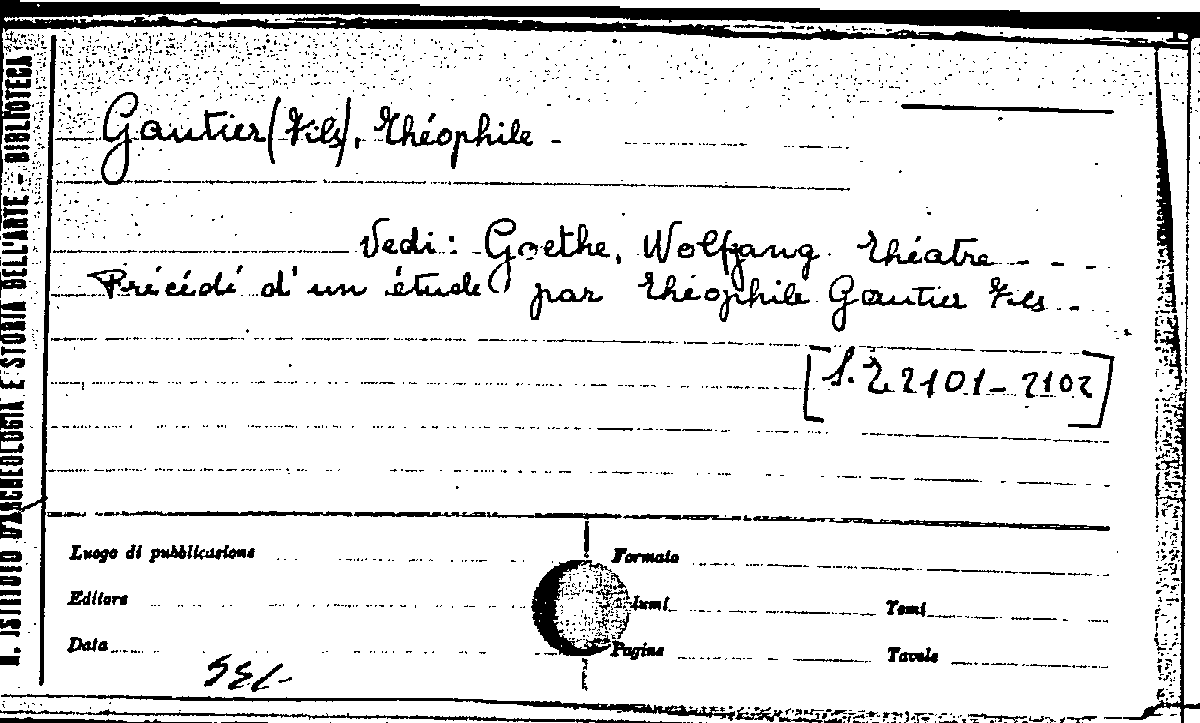 R. ISTITUTO D'ARCHEOLOGIA E STORIA DELL'ARTE - BIBLIOTECA
Gautier (Fils), Théophile -
Vedi: Goethe, Wolfgang Théatre - - -
Précédé d'un étude par Théophile Gautier Fils -
[S. Z 2101 - 2102]
Luogo di pubblicazione Formato
Editore lumi Tomi
Data Pagine Tavole